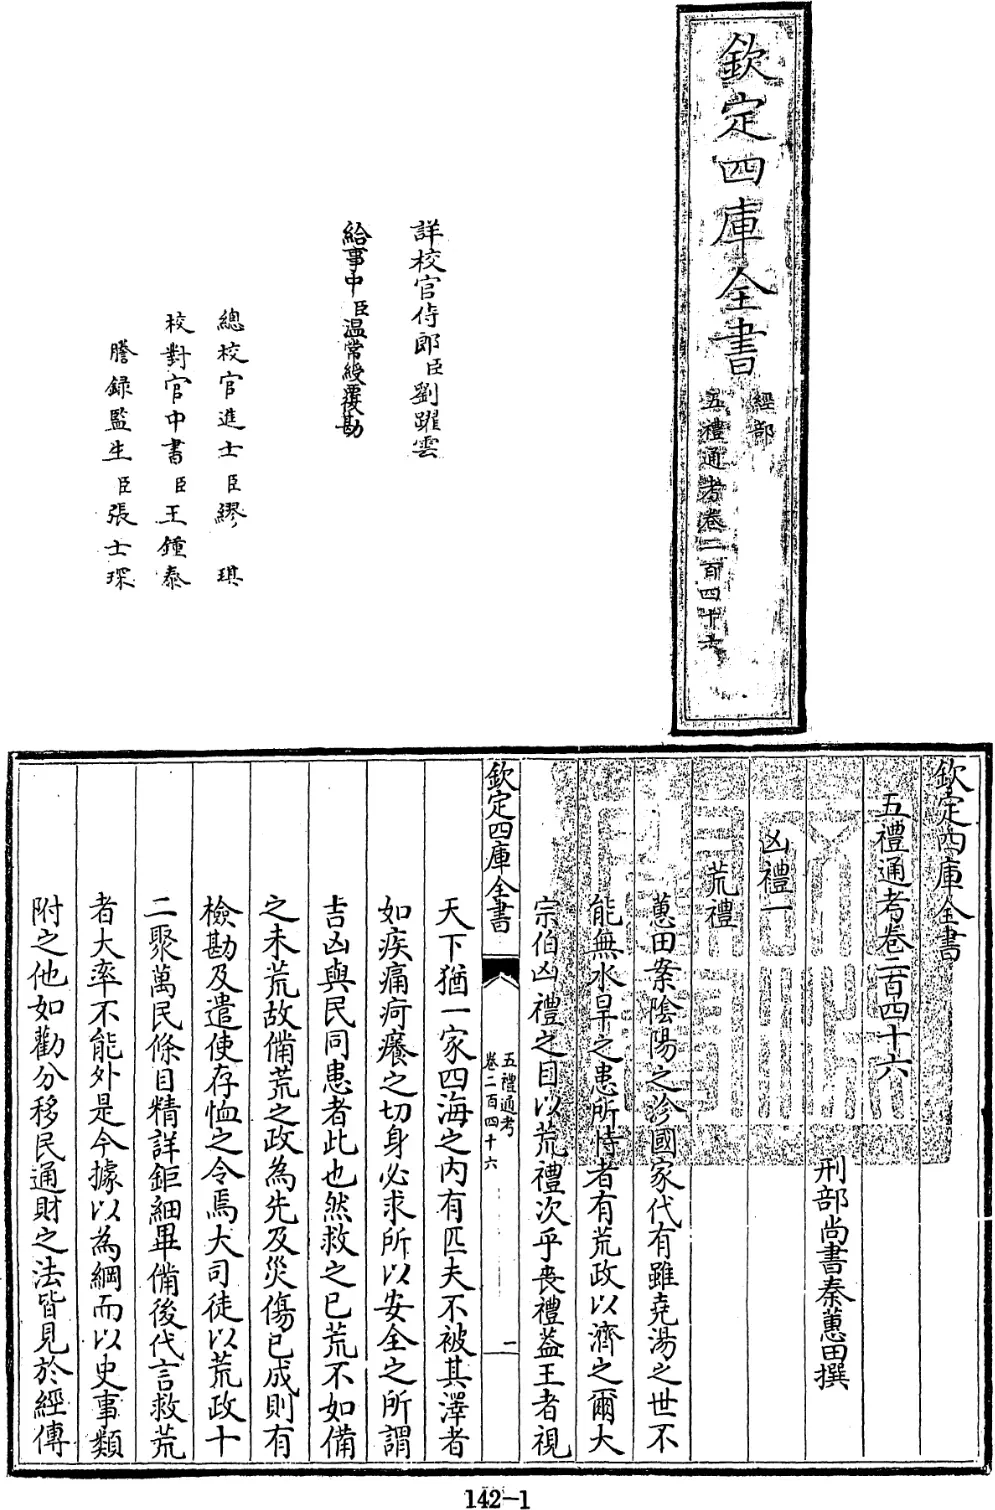 欽定四庫全書
經部
五禮通考卷二百四十六
詳校官侍郎臣劉躍雲
給事中臣温常綬覆勘
總校官進士臣繆琪
校對官中書臣王鍾泰
謄錄監生臣張士琛
欽定四庫全書
五禮通考卷二百四十六
刑部尚書秦蕙田撰
凶禮一
荒禮
蕙田案陰陽之沴國家代有雖堯湯之世不
能無水旱之患所恃者有荒政以濟之爾大
宗伯凶禮之目以荒禮次乎喪禮葢王者視
欽定四庫全書
五禮通考
卷二百四十六
一
天下猶一家四海之内有匹夫不被其澤者
如疾痛疴癢之切身必求所以安全之所謂
吉凶與民同患者此也然救之已荒不如備
之未荒故備荒之政為先及災傷已成則有
檢勘及遣使存恤之令焉大司徒以荒政十
二聚萬民條目精詳鉅細畢備後代言救荒
者大率不能外是今據以為綱而以史事類
附之他如勸分移民通財之法皆見於經傳
142-1